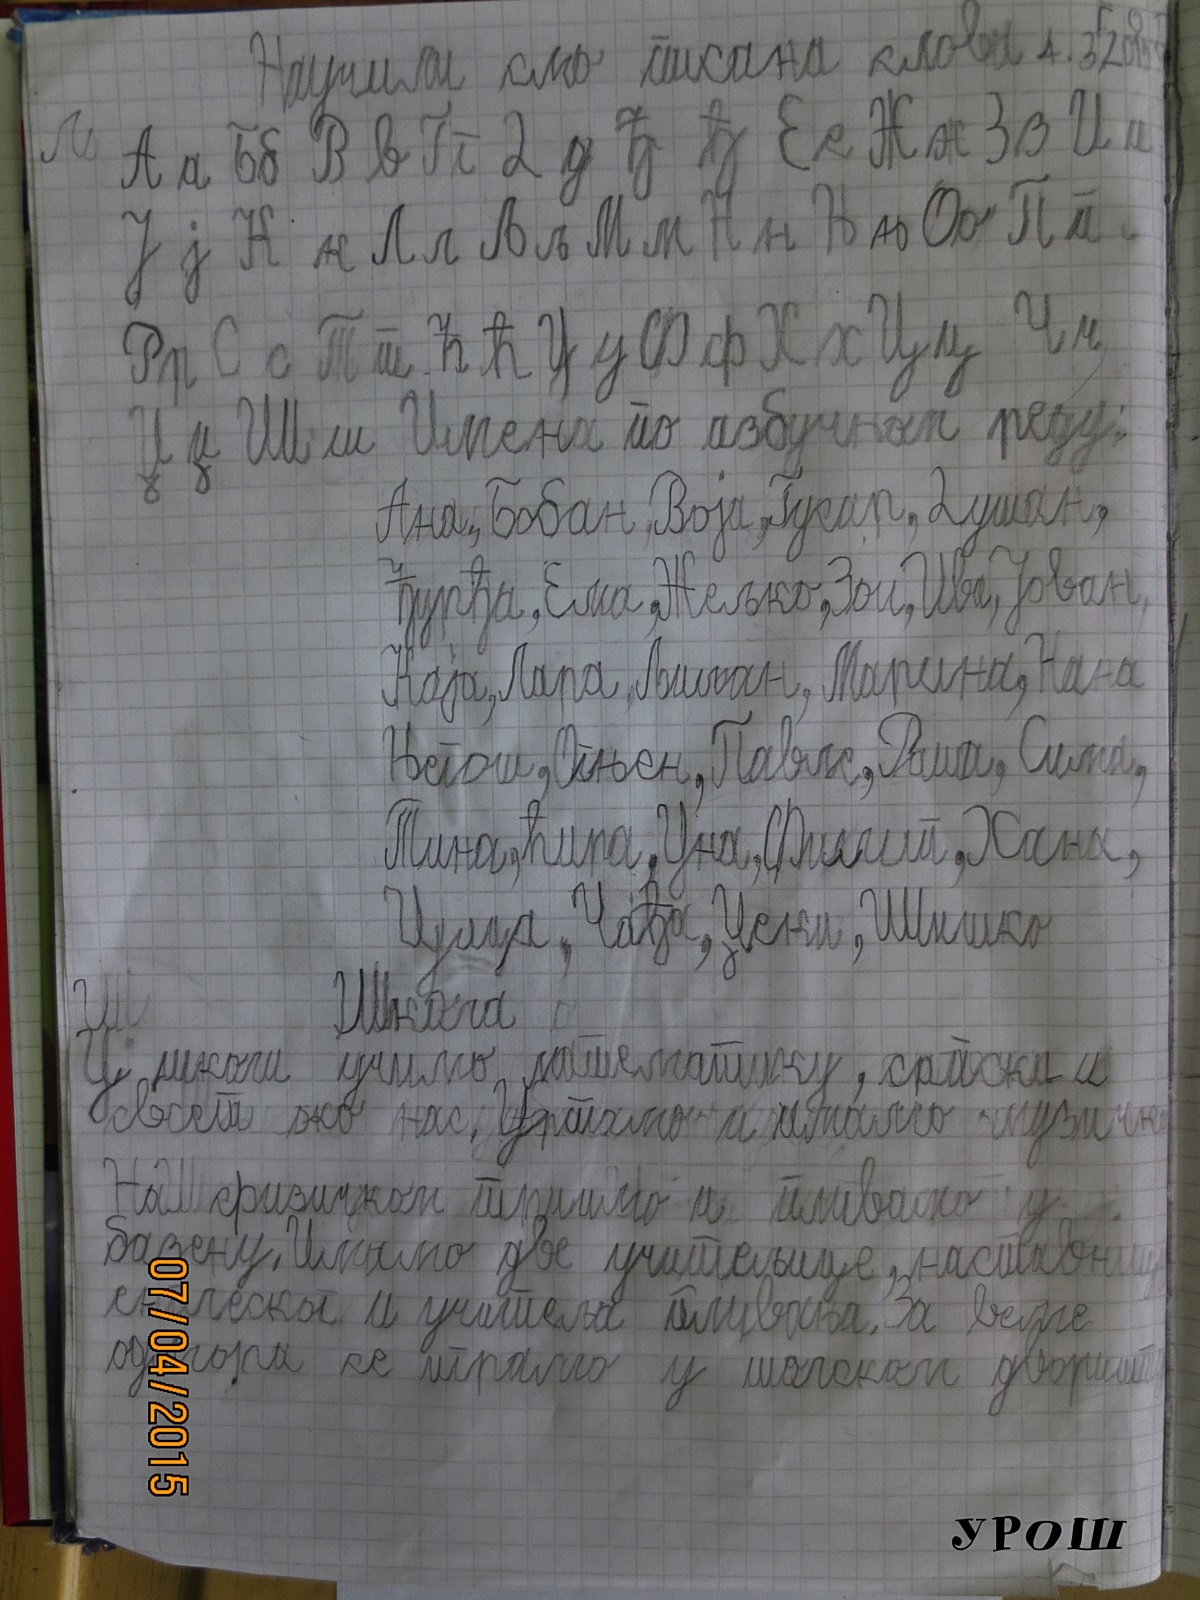 Научили смо писана слова
А а Б б В в Г г Д д Ђ ђ Е е Ж ж З з И и
Ј ј К к Л л Љ љ М м Н н Њ њ О о П п
Р р С с Т т Ћ ћ У у Ф ф Х х Ц ц Ч ч
Џ џ Ш ш Имена по азбучном реду:
Ана, Бобан, Воја, Душан,
Ђурђа, Ема, Жељко, Зои, Ива, Јован,
Каја, Лара, Марина, Нана
Његош, Огњен, Павле, Раша, Сима,
Тина, Ћира, Уна, Филип, Хана,
Цулца, Чађа, Џеки, Шишко
Школа
У школи учимо математику, српски и
свет око нас. Цртамо и имамо
На физичком и пливамо у
базену. Имамо две учитељице,
енглеског и учитеља пливања. За време
одмора се играмо у школском
07/04/2015
УРОШ